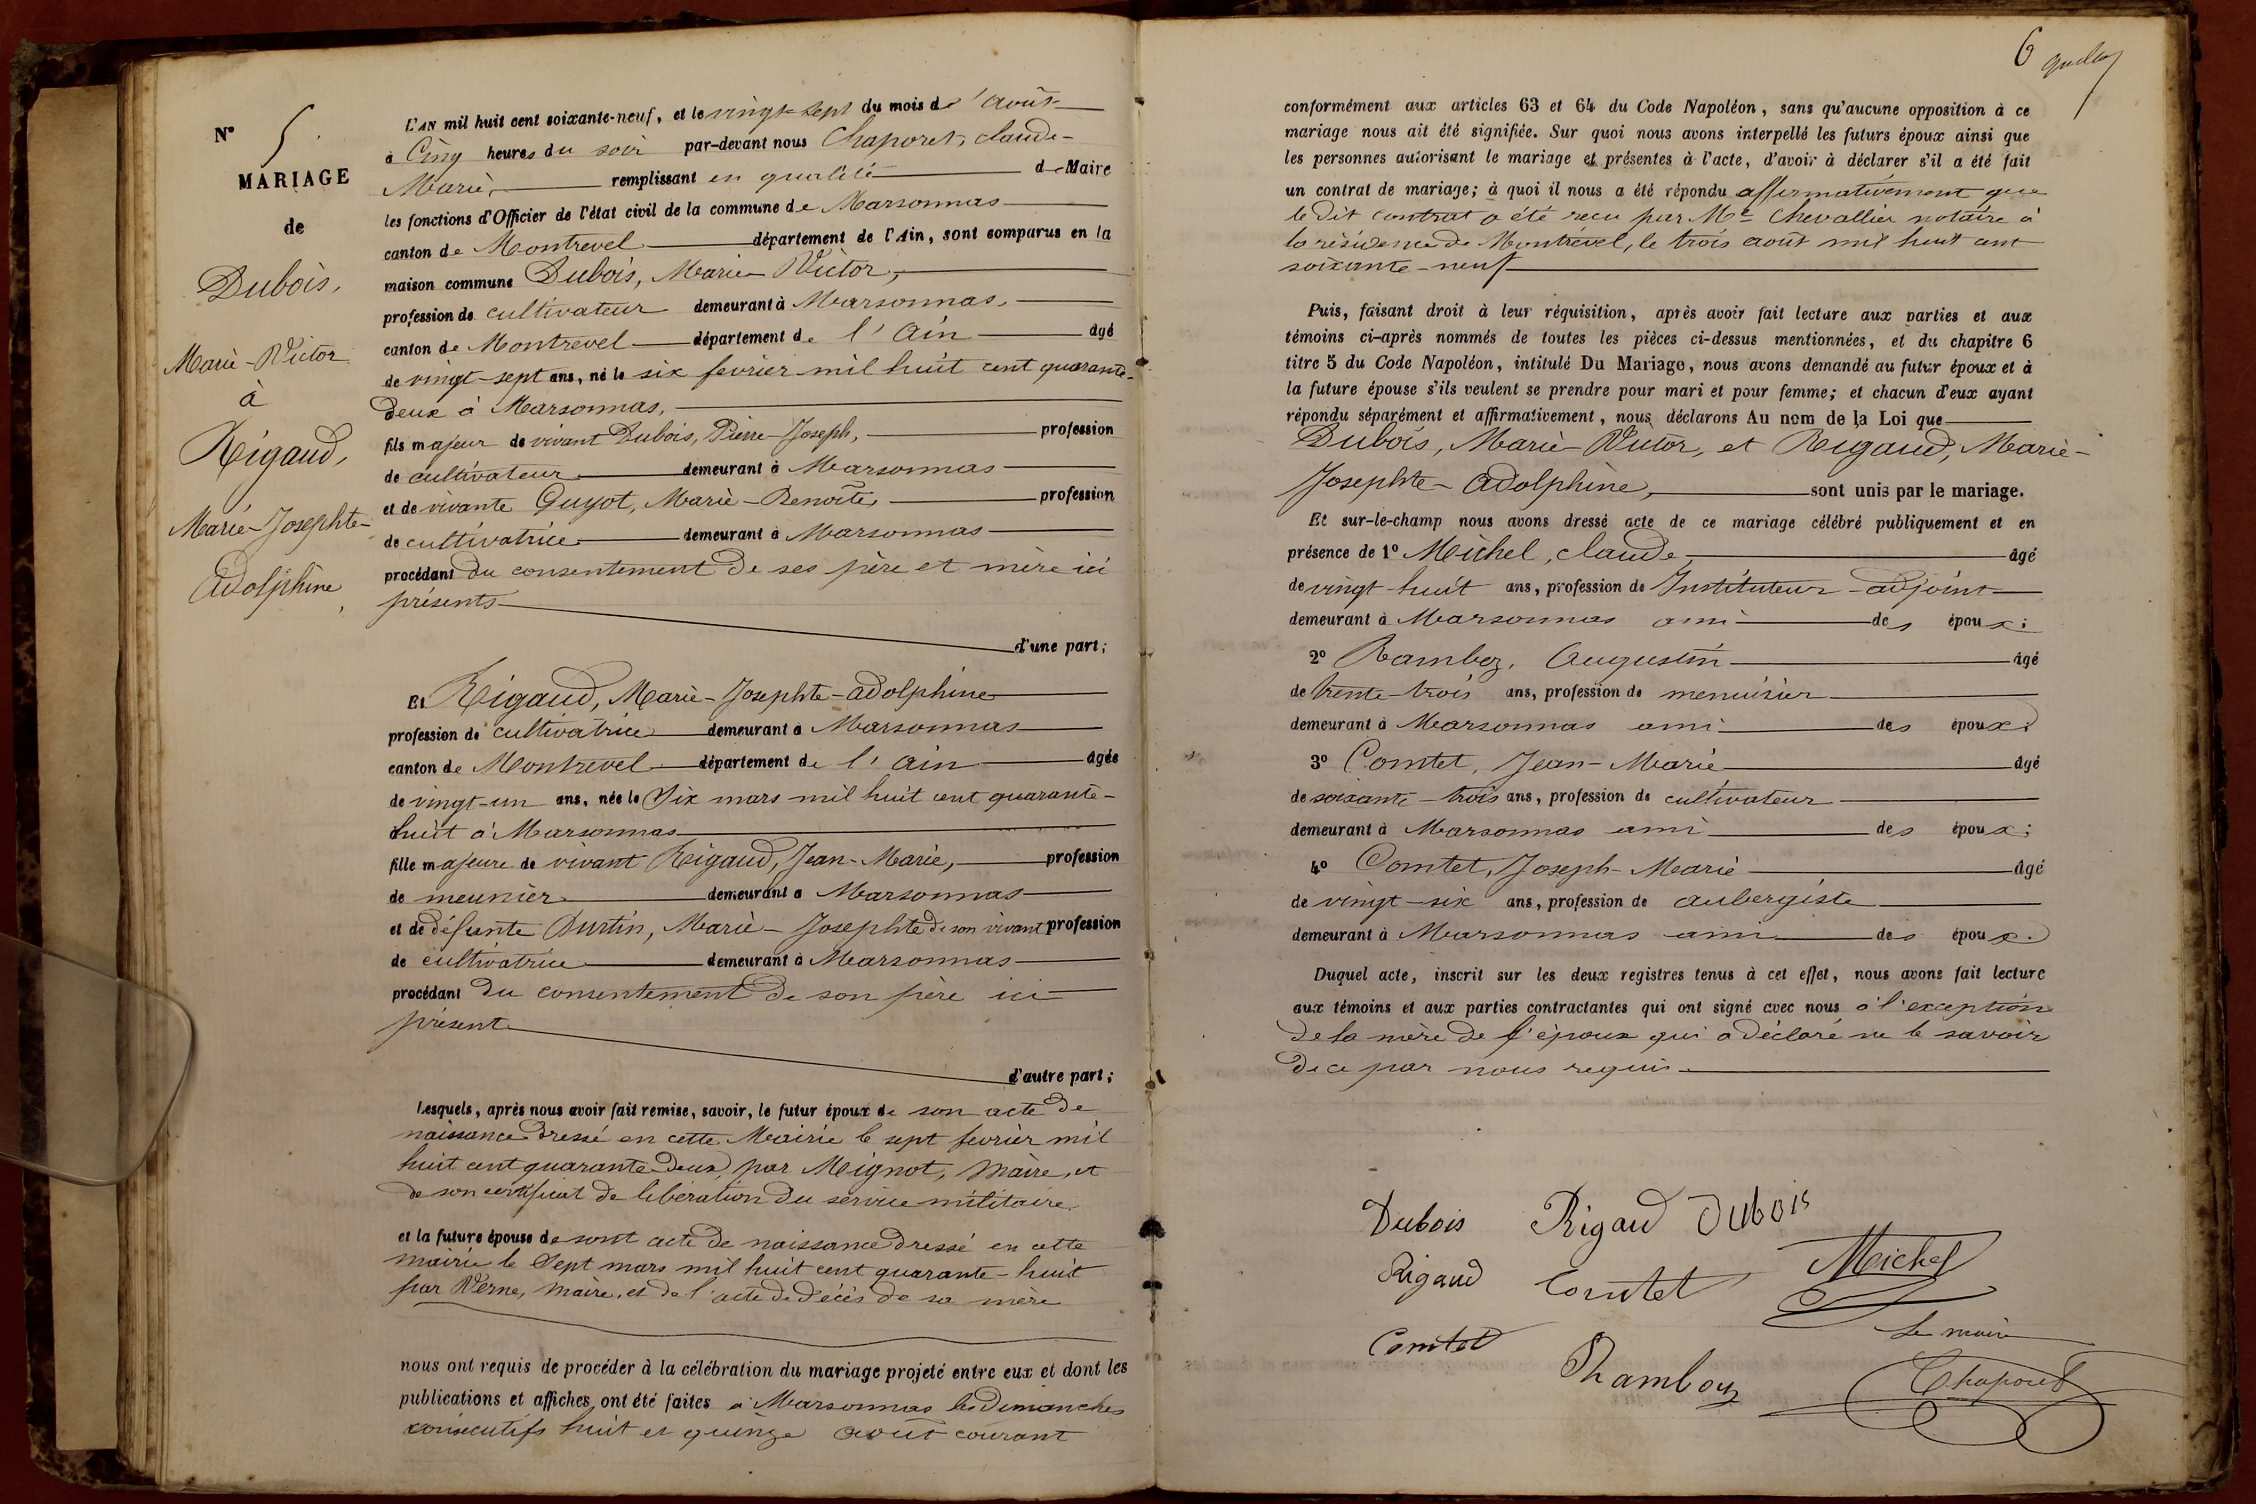 N° 5.
MARIAGE
de
Dubois,
Marie-Victor
à
Rigaud,
Marie-Josephte-
Adolphine,
L'AN mil huit cent soixante-neuf, et le vingt-sept du mois d' août
à Cinq heures du soir par-devant nous Chaporet, Claude-
Marie, remplissant en qualité de Maire
les fonctions d'Officier de l'état civil de la commune de Marsonnas
canton de Montrevel département de l'Ain, sont comparus en la
maison commune Dubois, Marie-Victor,
profession de cultivateur demeurant à Marsonnas,
canton de Montrevel département de l'Ain âgé
de vingt-sept ans, né le six fevrier mil huit cent quarante-
deux à Marsonnas,
fils majeur de vivant Dubois, Pierre-Joseph, profession
de cultivateur demeurant à Marsonnas
et de vivante Guyot, Marie-Benoîte, profession
de cultivatrice demeurant à Marsonnas
procédant du consentement de ses père et mère ici
présents
d'une part;
Et Rigaud, Marie-Josephte-Adolphine
profession de cultivatrice demeurant à Marsonnas
canton de Montrevel département de l'Ain âgée
de vingt-un ans, née le Six mars mil huit cent quarante-
huit à Marsonnas
fille majeure de vivant Rigaud, Jean-Marie, profession
de meunier demeurant à Marsonnas
et de défunte Durtin, Marie-Josephte de son vivant profession
de cultivatrice demeurant à Marsonnas
procédant du consentement de son père ici
présent
d'autre part;
Lesquels, après nous avoir fait remise, savoir, le futur époux de son acte de
naissance dressé en cette Mairie le sept fevrier mil
huit cent quarante-deux, par Mignot, Maire, et
de son certificat de libération du service militaire
et la future épouse de sont acte de naissance dressé en cette
mairie le Sept mars mil huit cent quarante-huit
par Verne, Maire, et de l'acte de décès de sa mère
nous ont requis de procéder à la célébration du mariage projeté entre eux et dont les
publications et affiches ont été faites à Marsonnas les Dimanches
consécutifs huit et quinze août courant
6
conformément aux articles 63 et 64 du Code Napoléon, sans qu'aucune opposition à ce
mariage nous ait été signifiée. Sur quoi nous avons interpellé les futurs époux ainsi que
les personnes autorisant le mariage et présentes à l'acte, d'avoir à déclarer s'il a été fait
un contrat de mariage; à quoi il nous a été répondu affirmativement que
le dit contrat a été recu par Me Chevallier notaire à
la résidence de Montrevel, le trois août mil huit cent
soixante-neuf
Puis, faisant droit à leur réquisition, après avoir fait lecture aux parties et aux
témoins ci-après nommés de toutes les pièces ci-dessus mentionnées, et du chapitre 6
titre 5 du Code Napoléon, intitulé Du Mariage, nous avons demandé au futur époux et à
la future épouse s'ils veulent se prendre pour mari et pour femme; et chacun d'eux ayant
répondu séparément et affirmativement, nous déclarons Au nom de la Loi que
Dubois, Marie-Victor, et Rigaud, Marie-
Josephte-Adolphine, sont unis par le mariage.
Et sur-le-champ nous avons dressé acte de ce mariage célébré publiquement et en
présence de 1° Michel, Claude âgé
de vingt-huit ans, profession de Instituteur-adjoint
demeurant à Marsonnas ami des époux;
2° Ramboz, Augustin âgé
de trente-trois ans, profession de menuisier
demeurant à Marsonnas ami des époux;
3° Comtet, Jean-Marie âgé
de soixante-trois ans, profession de cultivateur
demeurant à Marsonnas ami des époux;
4° Comtet, Joseph-Marie âgé
de vingt-six ans, profession de aubergiste
demeurant à Marsonnas ami des époux.
Duquel acte, inscrit sur les deux registres tenus à cet effet, nous avons fait lecture
aux témoins et aux parties contractantes qui ont signé avec nous à l'exception
de la mère de l'époux qui a déclaré ne le savoir
de ce par nous requis.
Dubois Rigaud Dubois
Rigaud Comtet Michel
Comtet Le maire
Chaporet